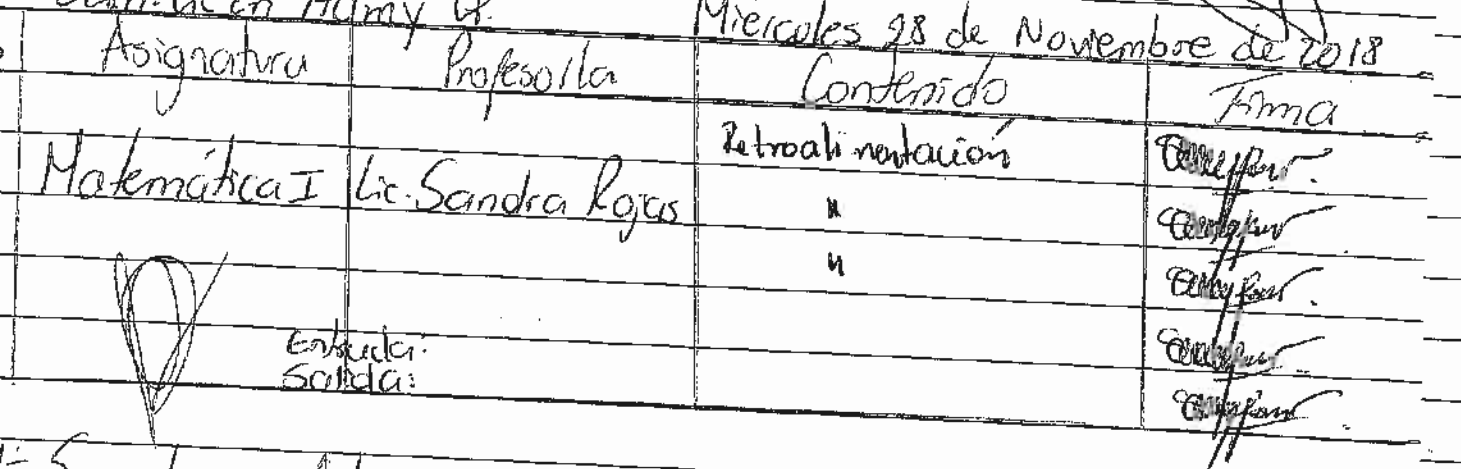 Miércoles 28 de Noviembre de 2018
Asignatura Profesor/la Contenido Firma
Retroalimentación
Matemática I Lic. Sandra Rojas "
"
Entrada:
Salida: